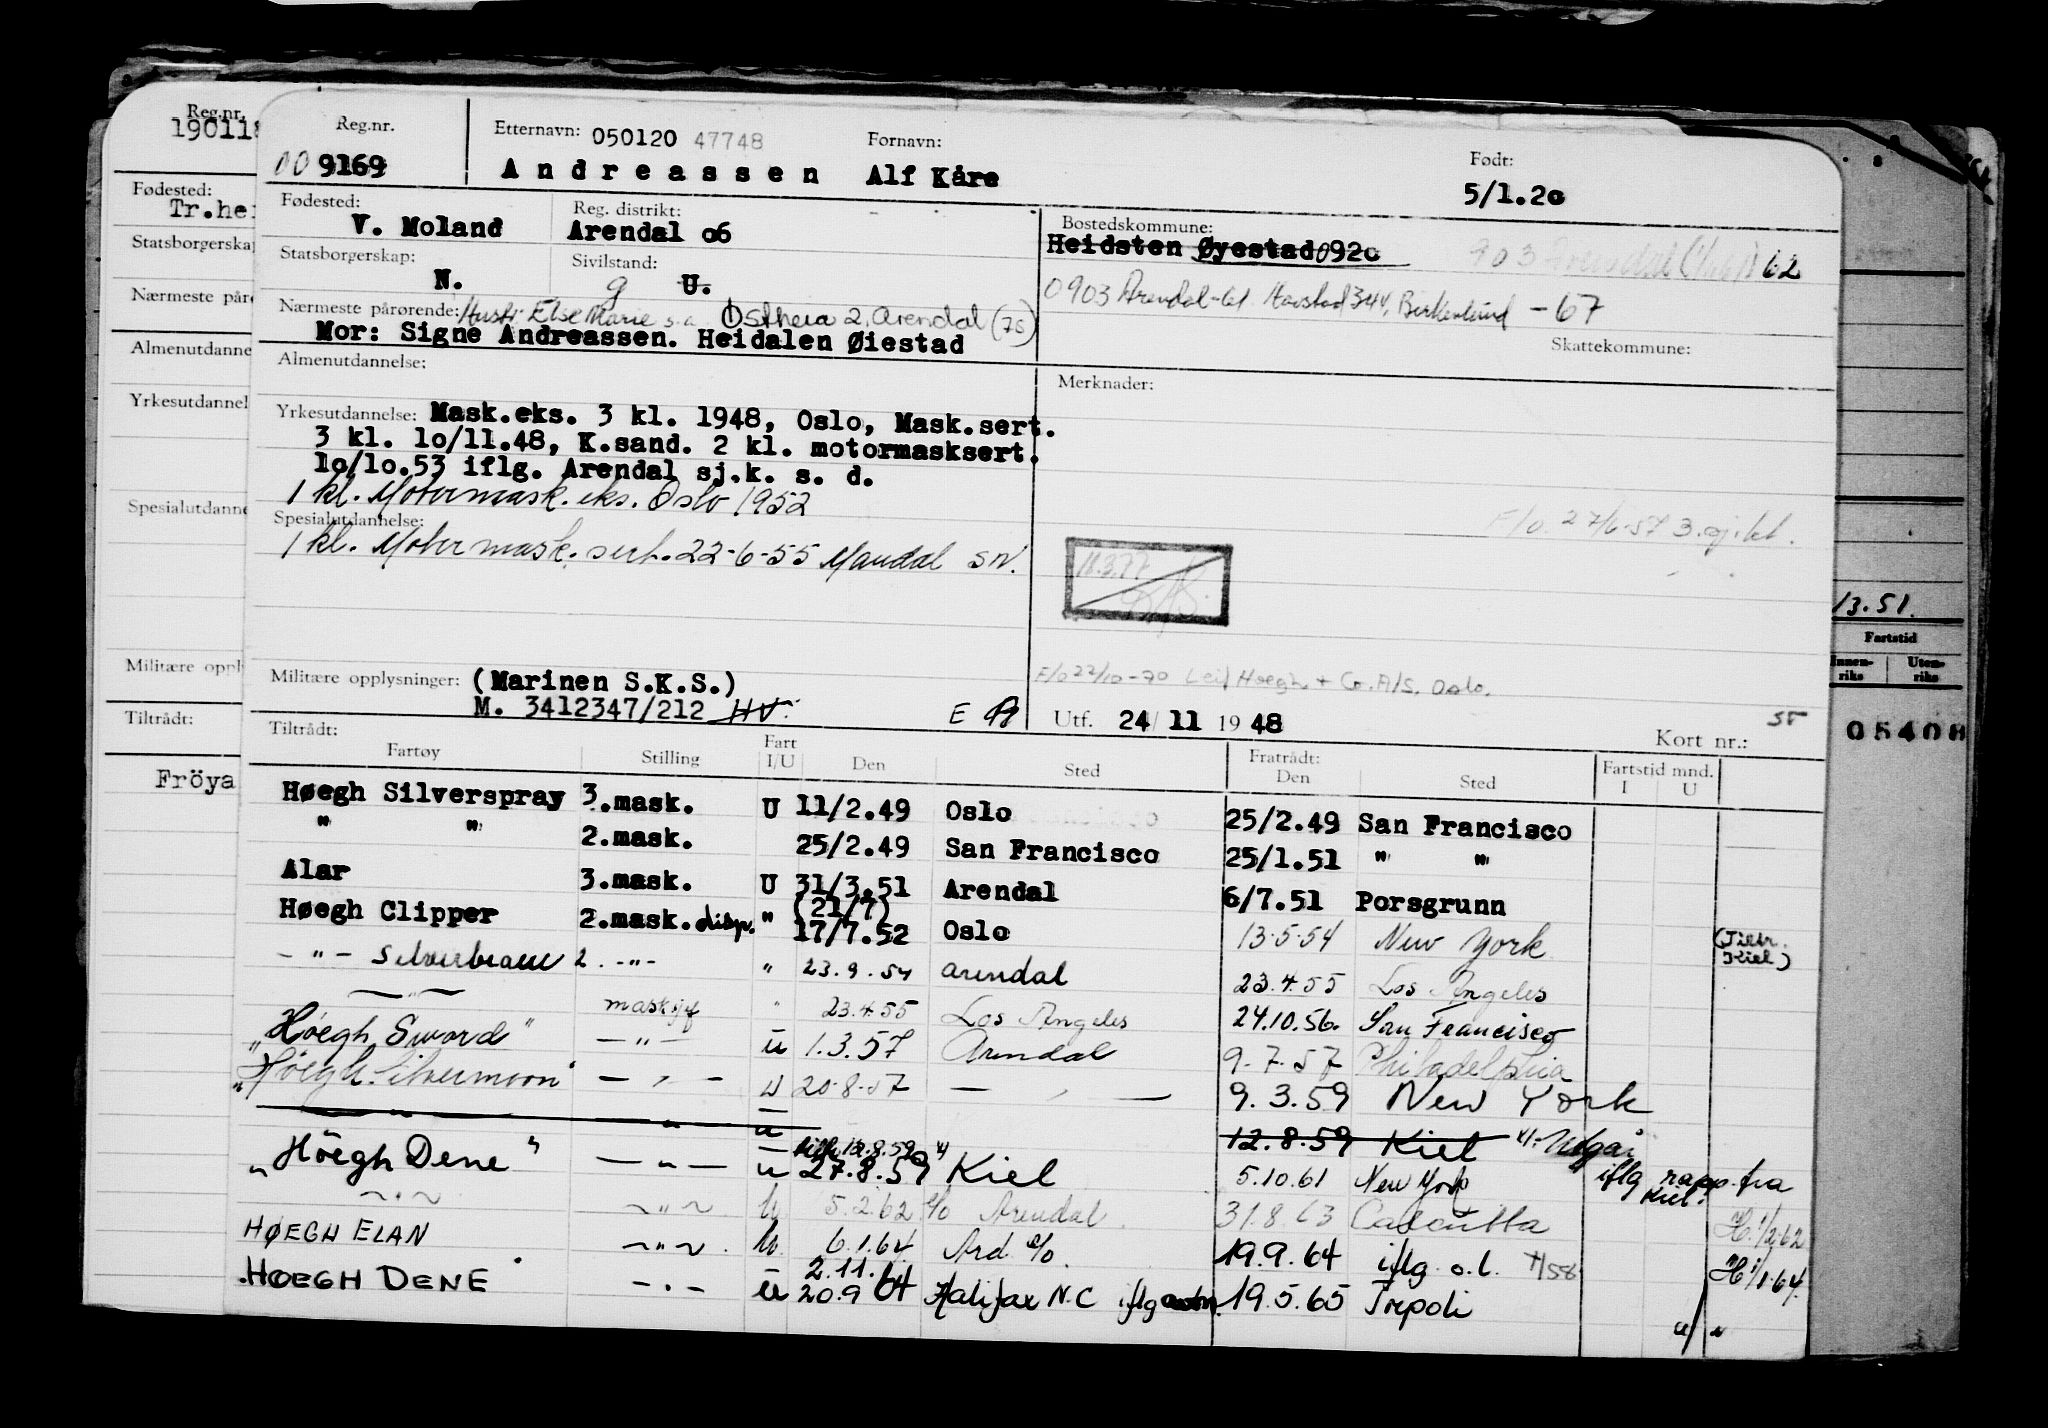 Reg.nr.
190118
Fødested:
Tr.hei
Statsborgerskap
Nærmeste påre
Almenutdanne
Yrkesutdannel
Spesialutdanne
Militære opply
Tiltrådt:
Fröya
Reg.nr.
00 9169
Etternavn: 050120 47748
Andreassen
Fornavn:
Alf Kåre
Født:
5/1.20
Fødested:
V. Moland
Reg. distrikt:
Arendal 06
Bostedskommune:
Heidsten Øyestad 0920 903 Arendal 62
0903 Arendal-61 Havstad 344, Birkenlund -67
Skattekommune:
Statsborgerskap:
N.
Sivilstand:
g U.
Nærmeste pårørende: Hustr. Else Marie s.a. Østheia 2, Arendal (75)
Mor: Signe Andreassen. Heidalen Øiestad
Almenutdannelse:
Merknader:
Yrkesutdannelse: Mask.eks. 3 kl. 1948, Oslo, Mask.sert.
3 kl. 10/11.48, K.sand. 2 kl. motormasksert.
10/10.53 iflg. Arendal sj.k. s. d.
1 kl. Motormask.eks. Oslo 1952
Spesialutdannelse:
1 kl. Motormask. sert. 22-6-55 Mandal SN.
F/o. 27/6-57 3.
18.3.77
Militære opplysninger: (Marinen S.K.S.)
M. 3412347/212 HV.
E
F/o 22/10-70 Leif Høegh + Co. A/S. Oslo.
Utf. 24/ 11 19 48
Kort nr.:
Tiltrådt:
Fartøy Stilling Fart I/U Den Sted Fratrådt: Den Sted Fartstid mnd. I U
Høegh Silverspray 3.mask. U 11/2.49 Oslo 25/2.49 San Francisco
" " 2.mask. 25/2.49 San Francisco 25/1.51 " "
Alar 3.mask. U 31/3.51 Arendal 6/7.51 Porsgrunn
Høegh Clipper 2.mask. disp. " (21/7) 17/7.52 Oslo 13.5.54 New York (Tiltr. Kiel)
- " - Silverbeam 2. -"- " 23.9.54 Arendal 23.4.55 Los Angeles
- " - masksjef " 23.4.55 Los Angeles 24.10.56. San Francisco
"Høegh Sword" - " - u 1.3.57 Arendal 9.7.57 Philadelphia
"Höegh Silvermoon" - " - u 20.8.57 - " - 9.3.59 New York
- " - " u 12.8.59 Kiel 12.8.59 Kiel Utgår
"Höegh Dene" - " - u 27.8.59 Kiel 5.10.61 New York iflg rapp. fra Kiel.
- " - - " - u 5.2.62 Arendal 31.8.63 Calcutta H. 1/2.62
HØEGH ELAN - " - u. 6.1.64 Ard. 19.9.64 iflg. o.l. H 1/1.64.
HOEGH DENE - " - u 2.11.64 20.9 64 Halifax N.C iflg 19.5.65 Tripoli
13.51.
Fartstid
Innen-riks Uten-riks
05408